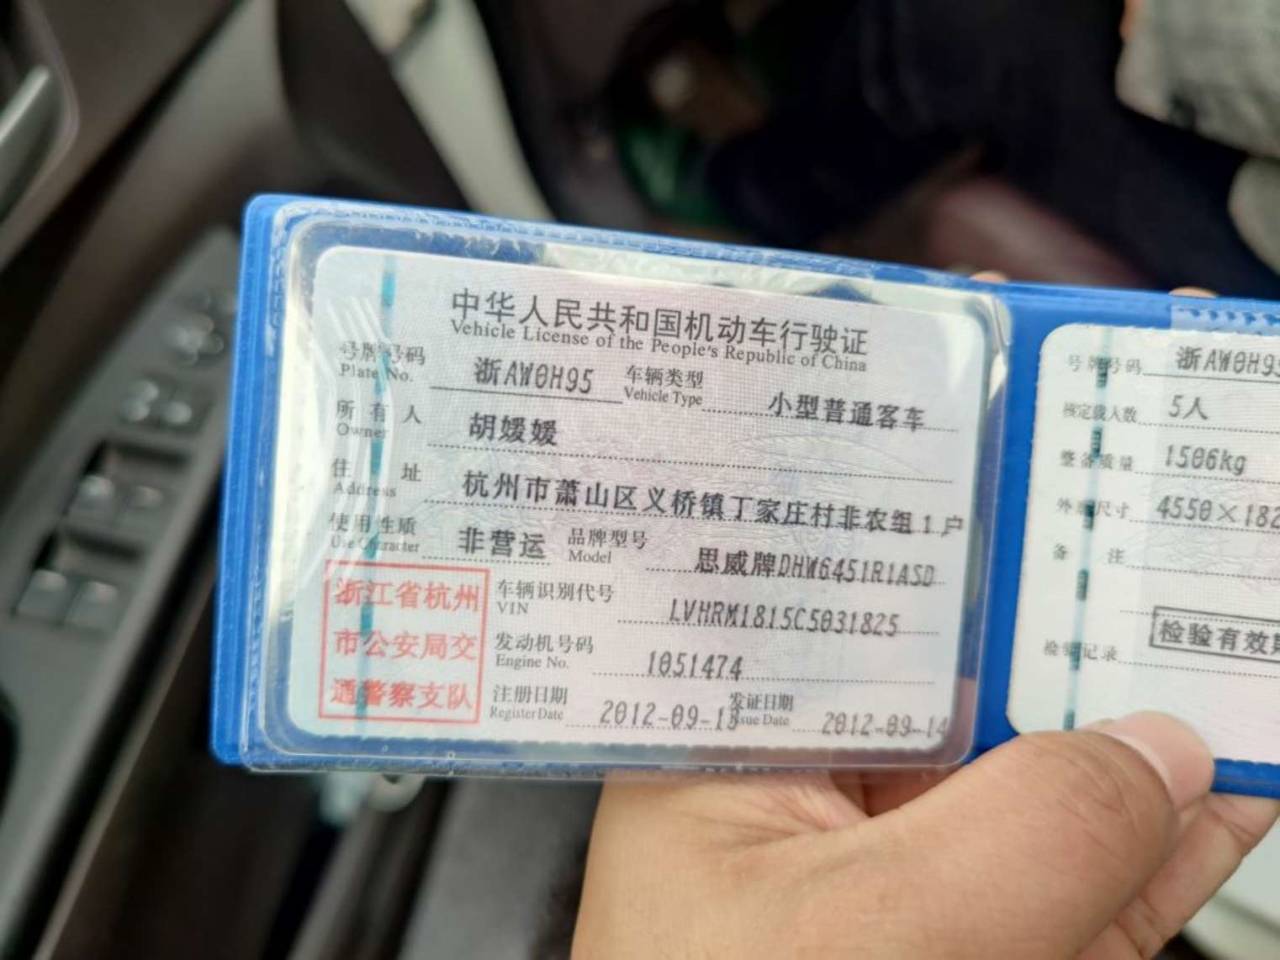 中华人民共和国机动车行驶证
Vehicle License of the People's Republic of China
号牌号码 浙AW0H95 车辆类型 小型普通客车
Plate No. Vehicle Type
所有人 胡媛媛
Owner
住址 杭州市萧山区义桥镇丁家庄村非农组1户
Address
使用性质 非营运 品牌型号 思威牌DHW6451R1ASD
Use Character Model
浙江省杭州
市公安局交
通警察支队
车辆识别代号 LVHRM1815C5031825
VIN
发动机号码 1051474
Engine No.
注册日期 2012-09-13 发证日期 2012-09-14
Register Date Issue Date
号牌号码 浙AW0H95
核定载人数 5人
整备质量 1506kg
外廓尺寸 4550×182
备注
检验有效期
检验记录